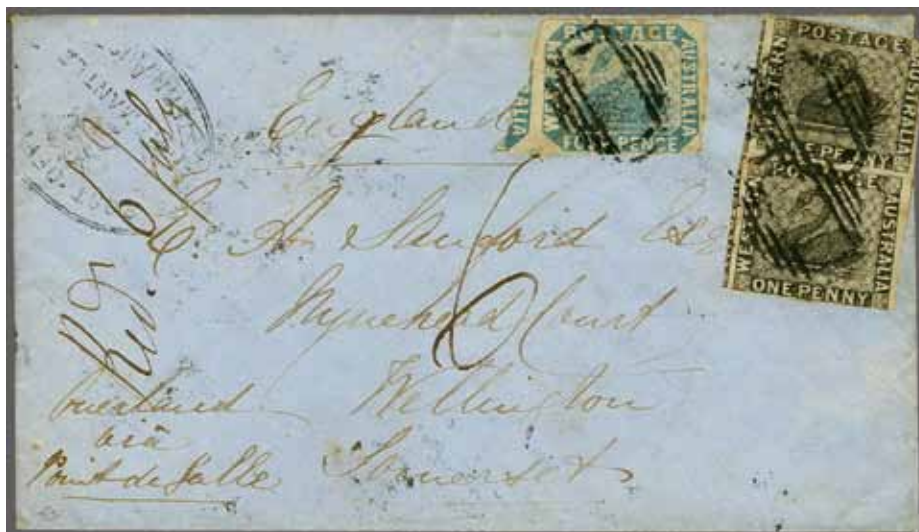 POSTAGE
WESTERN
AUSTRALIA
FOUR PENCE
AUSTRALIA
POSTAGE
WESTERN
AUSTRALIA
ONE PENNY
POSTAGE
WESTERN
AUSTRALIA
ONE PENNY
England
Sanford Esq
Nynehead Court
Wellington
Somerset
overland
via
Point de Galle
6